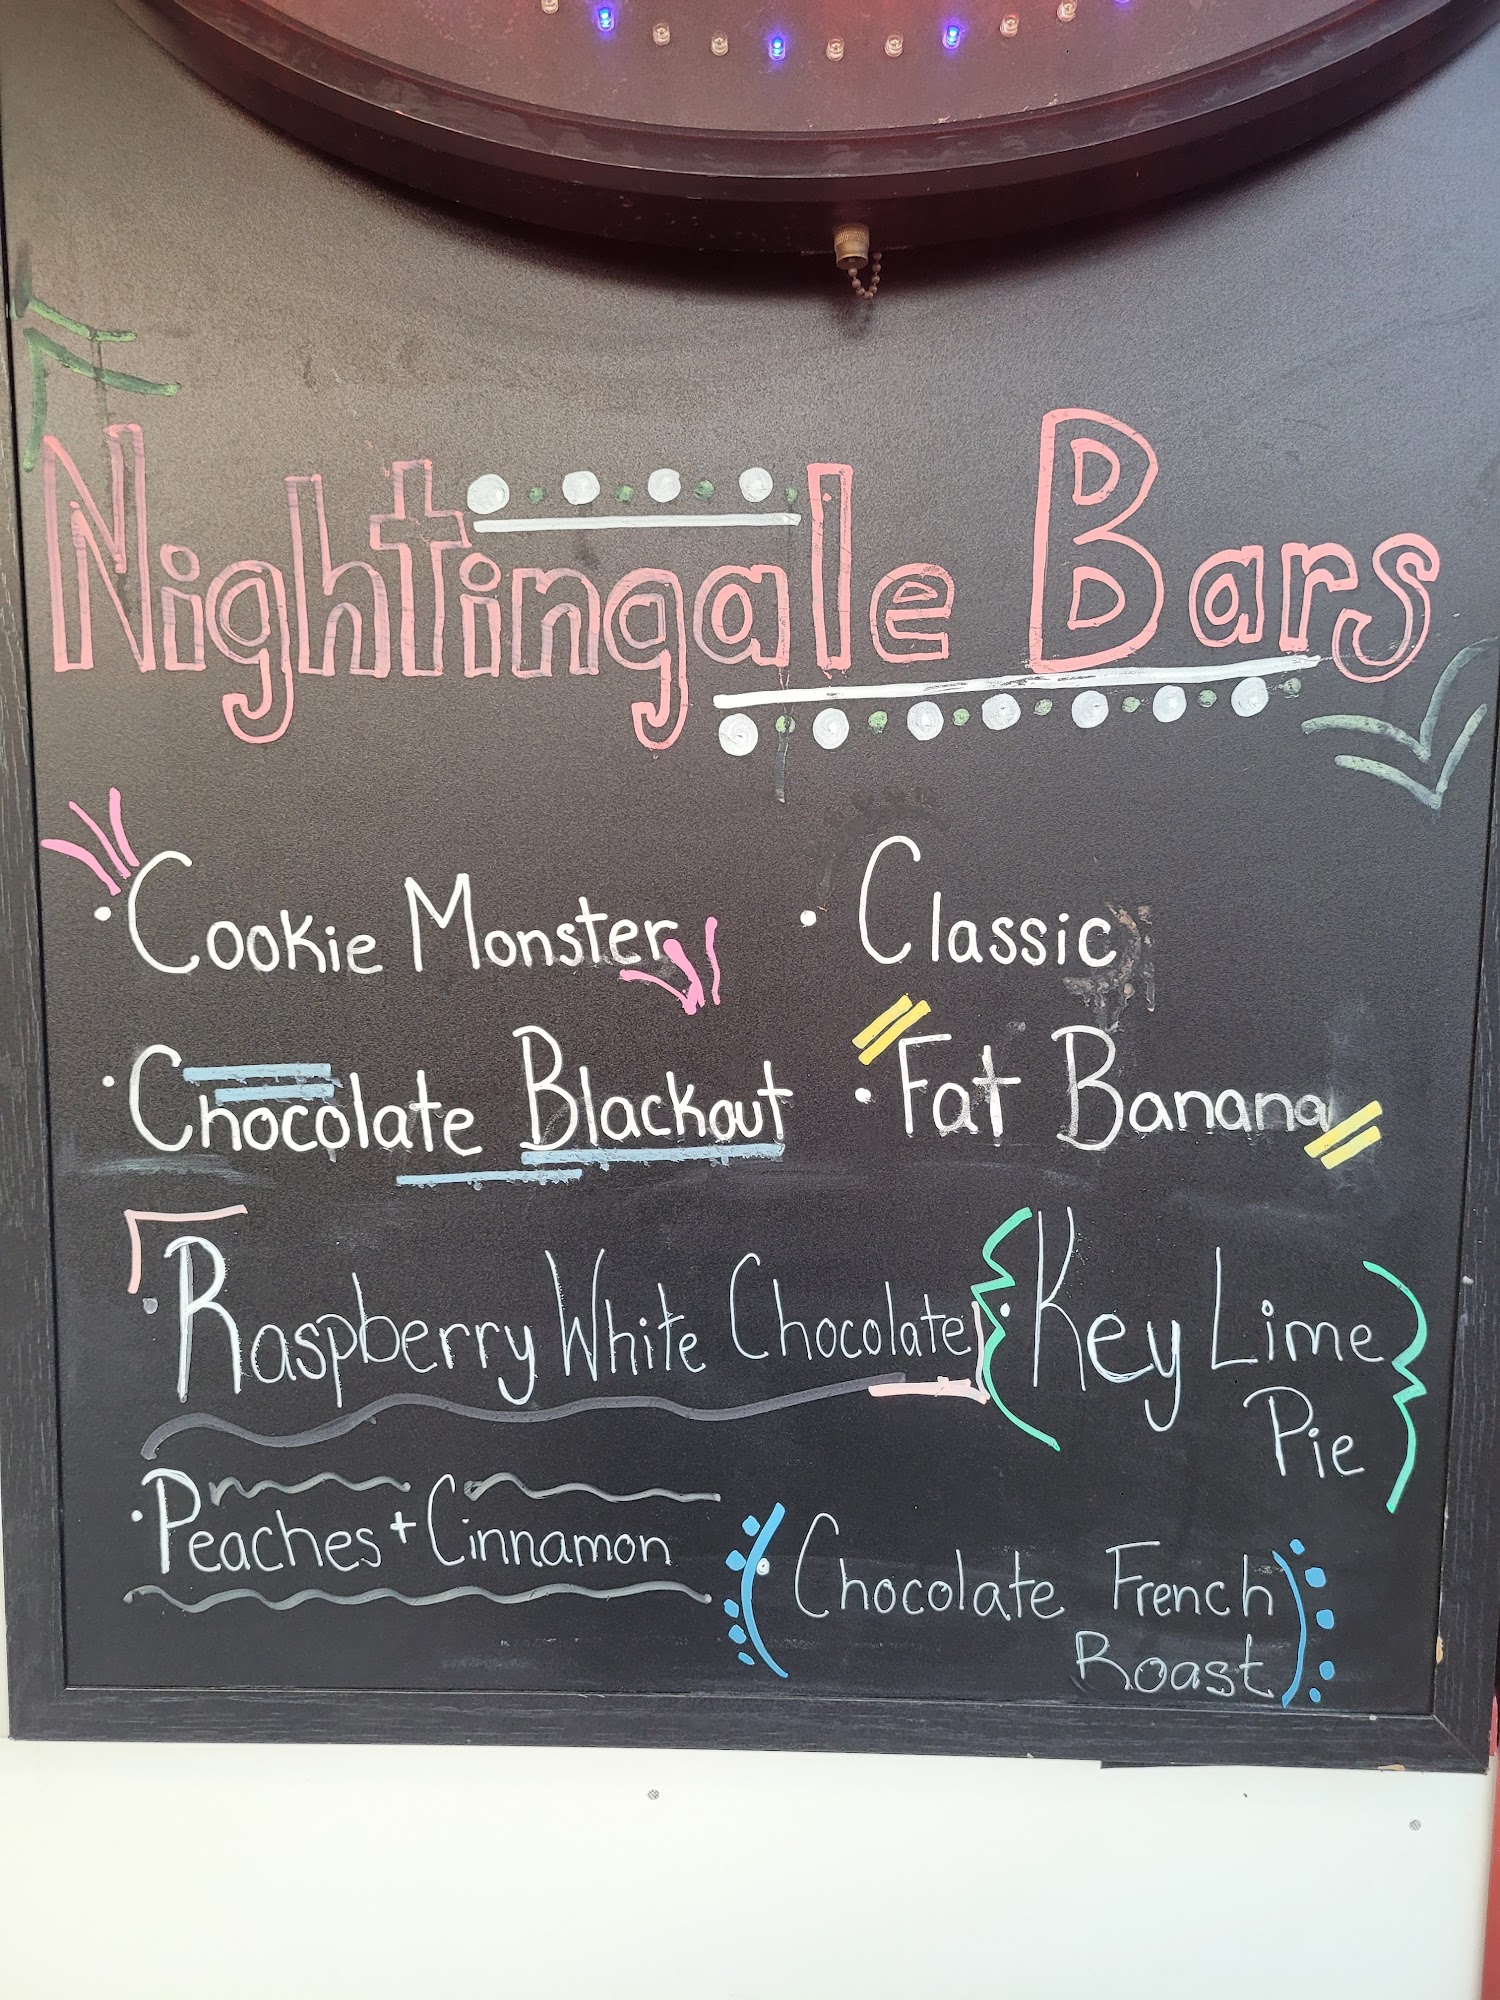 Nightingale Bars
• Cookie Monster
• Classic
• Chocolate Blackout
• Fat Banana
• Raspberry White Chocolate
• Key Lime
Pie
• Peaches + Cinnamon
• Chocolate French
Roast